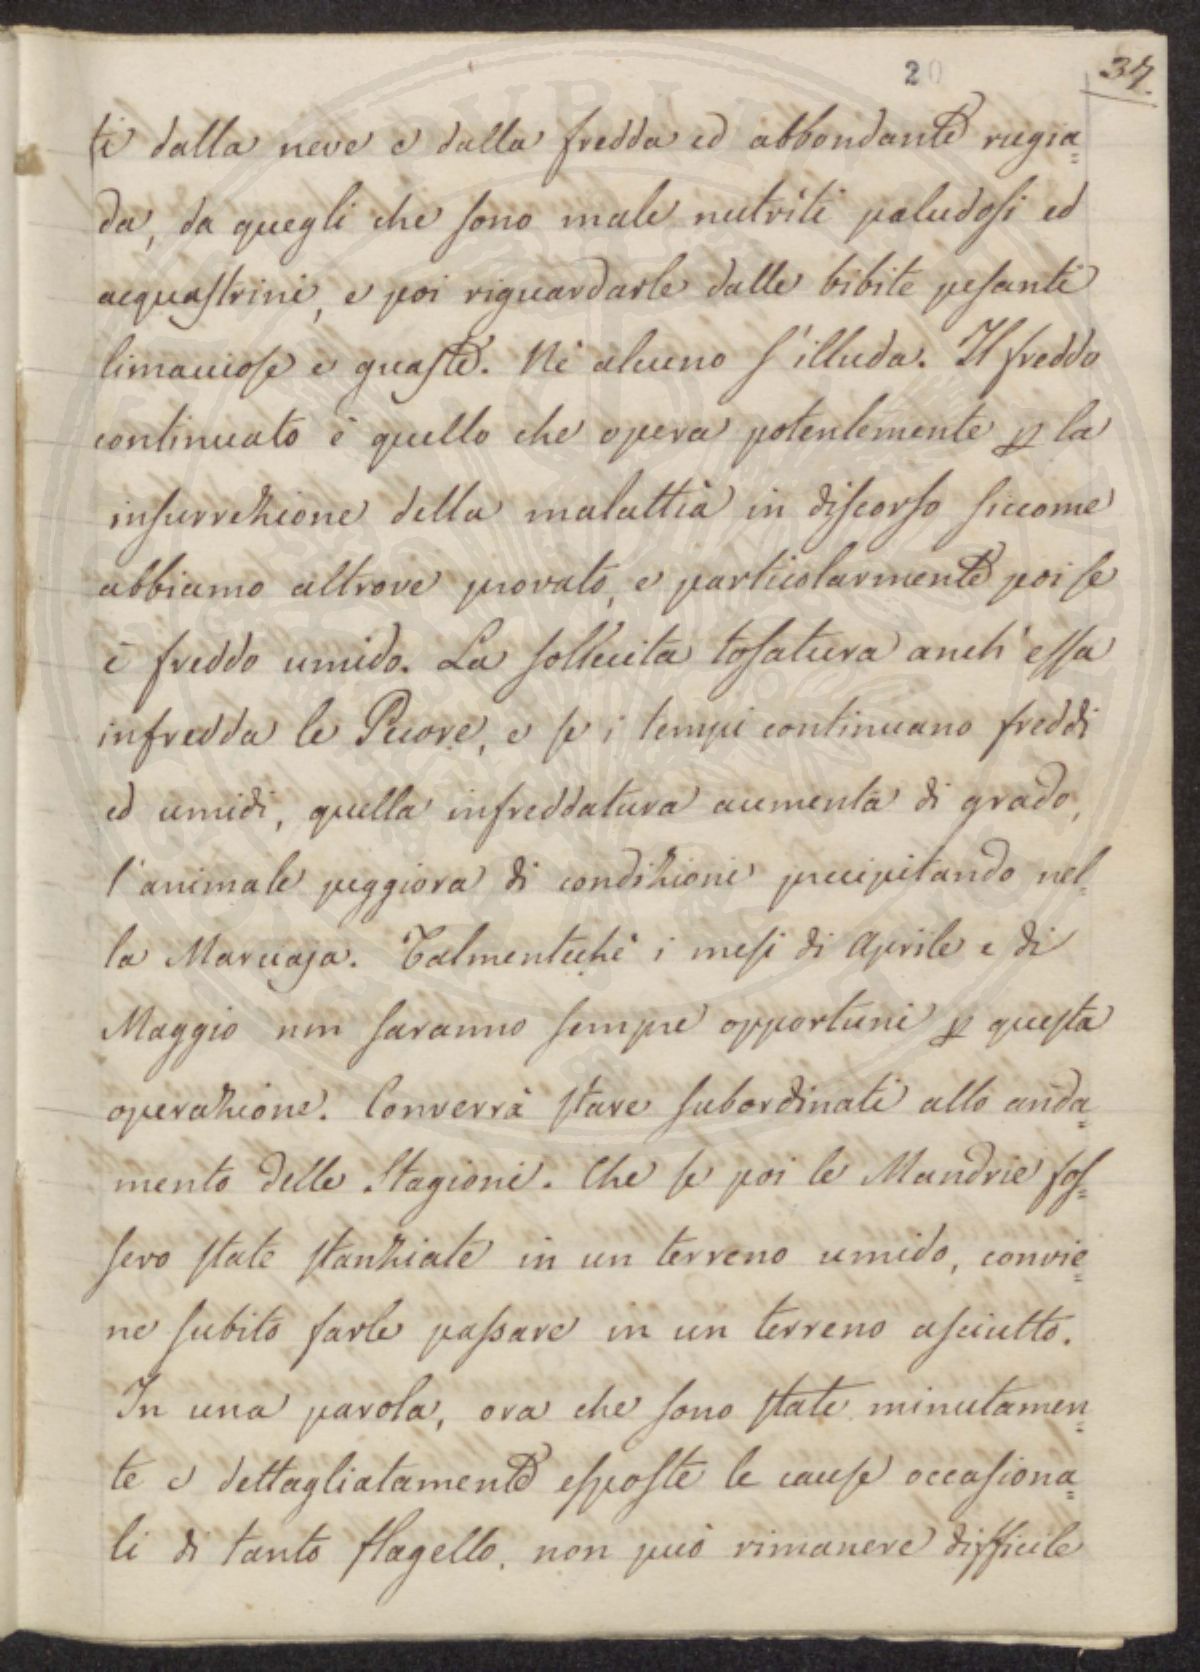 20
37.
ti dalla neve e dalla fredda ed abbondante rugia=
da, da quegli che sono male nutriti paludosi ed
acquastrini, e poi riguardarle dalle bibite pesanti
limacciose e guaste. Nè alcuno s'illuda. Il freddo
continuato è quello che opera potentemente p la
insurrezione della malattia in discorso siccome
abbiamo altrove provato, e particolarmente poi se
è freddo umido. La sollecita tosatura anch'essa
infredda le Pecore, e se i tempi continuano freddi
ed umidi, quella infreddatura aumenta di grado,
l'animale peggiora di condizioni precipitando nel=
la Marciaja. Talmentechè i mesi di Aprile e di
Maggio non saranno sempre opportuni p questa
operazione. Converrà stare subordinati allo anda=
mento delle Stagioni. Che se poi le Mandrie fos=
sero state stanziate in un terreno umido, convie=
ne subito farle passare in un terreno asciutto.
In una parola, ora che sono state minutamen=
te e dettagliatamente esposte le cause occasiona=
li di tanto flagello, non può rimanere difficile